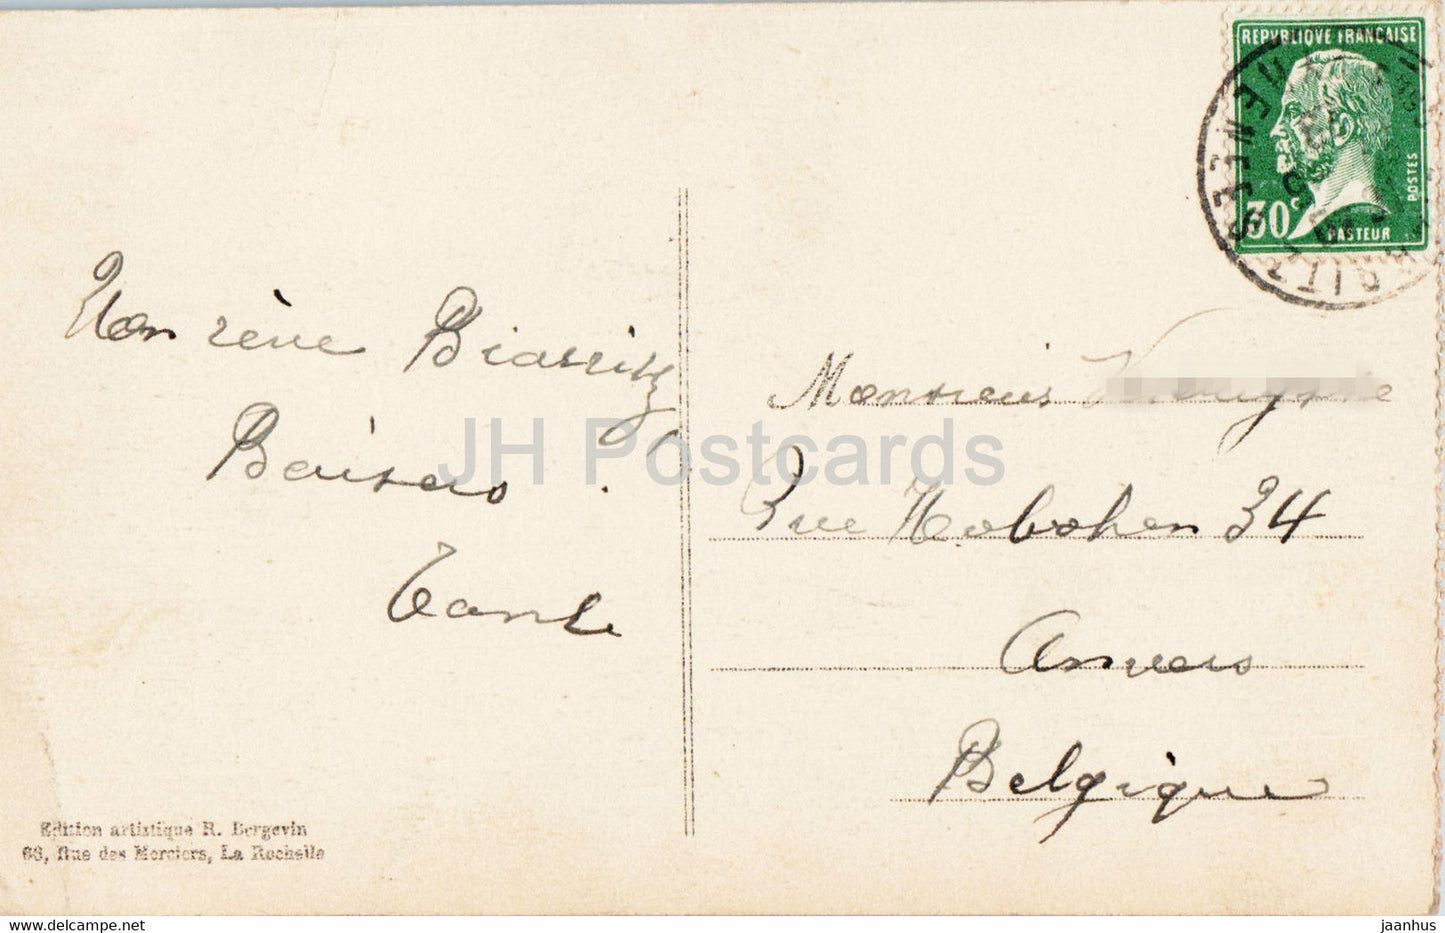 Mon rêve Biarritz
Baisers.
Tante
Edition artistique R. Bergevin
68, Rue des Merciers, La Rochelle
REPVBLIQVE FRANÇAISE
30c
POSTES
PASTEUR
Monsieur
Rue Hobohen 34
Anvers
Belgique
JH Postcards
www.delcampe.net
jaanhus